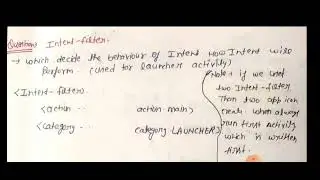 Question Intent-filter.
→ which decide the behaviour of Intent How Intent will
Perform. (used for launcher activity)
<Intent-filter>
<action .. action.main>
<category .. category LAUNCHER>
Note if we used
two Intent-filter
Then two app icon
create. when always
run first activity
which is written
first.